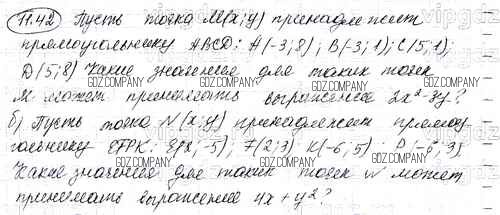 11.42 Пусть точка M(x; y) принадлежит
прямоугольнику ABCD: A(-3; 8); B(-3; 1); C(5; 1);
D(5; 8) Какие значения для таких точек
M может принимать выражение 2x² - 3y?
б) Пусть точка N(x; y) принадлежит прямоу
гольнику EFPK: -5); F(2; 3) K(-6; 5); P(-6; 3)
Какие значения для таких точек N может
принимать выражение 4x + y²?
GDZ.COMPANY